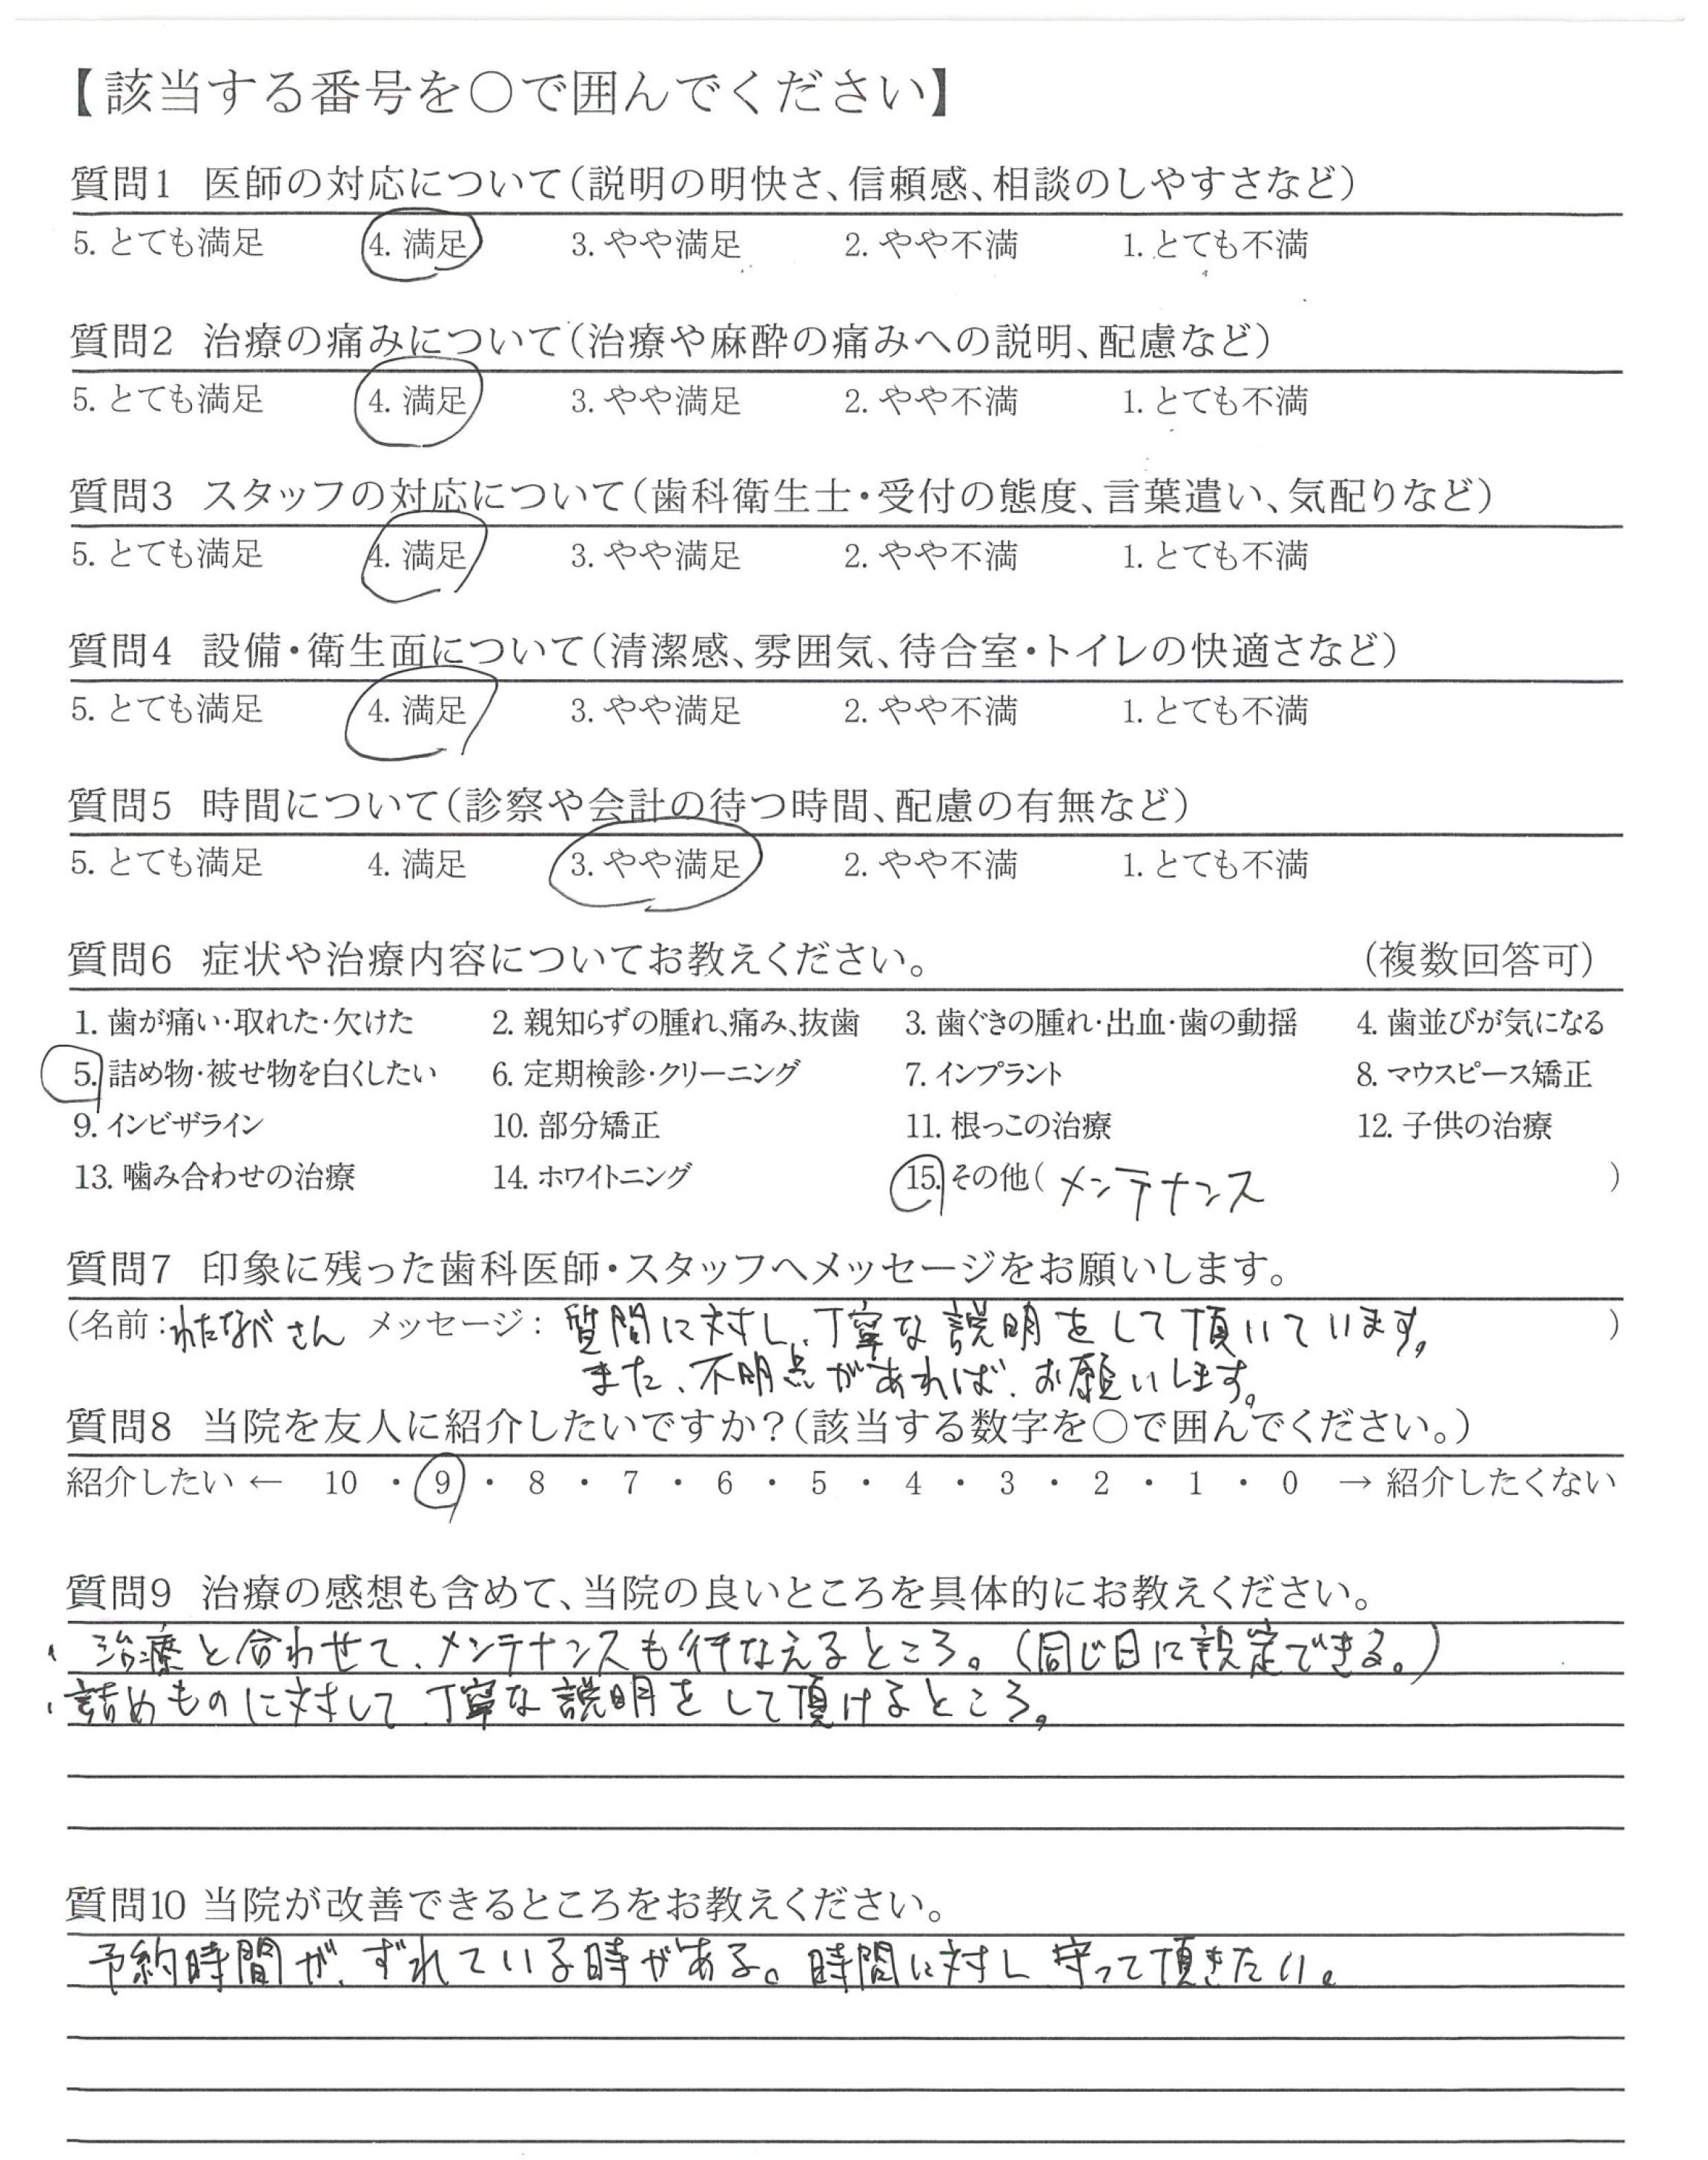 【該当する番号を○で囲んでください】
質問1 医師の対応について（説明の明快さ、信頼感、相談のしやすさなど）
5. とても満足 4. 満足 3. やや満足 2. やや不満 1. とても不満
質問2 治療の痛みについて（治療や麻酔の痛みへの説明、配慮など）
5. とても満足 4. 満足 3. やや満足 2. やや不満 1. とても不満
質問3 スタッフの対応について（歯科衛生士・受付の態度、言葉遣い、気配りなど）
5. とても満足 4. 満足 3. やや満足 2. やや不満 1. とても不満
質問4 設備・衛生面について（清潔感、雰囲気、待合室・トイレの快適さなど）
5. とても満足 4. 満足 3. やや満足 2. やや不満 1. とても不満
質問5 時間について（診察や会計の待つ時間、配慮の有無など）
5. とても満足 4. 満足 3. やや満足 2. やや不満 1. とても不満
質問6 症状や治療内容についてお教えください。 （複数回答可）
1. 歯が痛い・取れた・欠けた 2. 親知らずの腫れ、痛み、抜歯 3. 歯ぐきの腫れ・出血・歯の動揺 4. 歯並びが気になる
5. 詰め物・被せ物を白くしたい 6. 定期検診・クリーニング 7. インプラント 8. マウスピース矯正
9. インビザライン 10. 部分矯正 11. 根っこの治療 12. 子供の治療
13. 噛み合わせの治療 14. ホワイトニング 15. その他（メンテナンス ）
質問7 印象に残った歯科医師・スタッフへメッセージをお願いします。
（名前：わたなべさん メッセージ：質問に対し、丁寧な説明をして頂いています。 ）
また、不明点があれば、お願いします。
質問8 当院を友人に紹介したいですか？（該当する数字を○で囲んでください。）
紹介したい ← 10 ・ 9 ・ 8 ・ 7 ・ 6 ・ 5 ・ 4 ・ 3 ・ 2 ・ 1 ・ 0 → 紹介したくない
質問9 治療の感想も含めて、当院の良いところを具体的にお教えください。
・治療と合わせて、メンテナンスも行なえるところ。（同じ日に設定できる。）
・詰めものに対して丁寧な説明をして頂けるところ。
質問10 当院が改善できるところをお教えください。
予約時間が、ずれている時がある。時間に対し守って頂きたい。